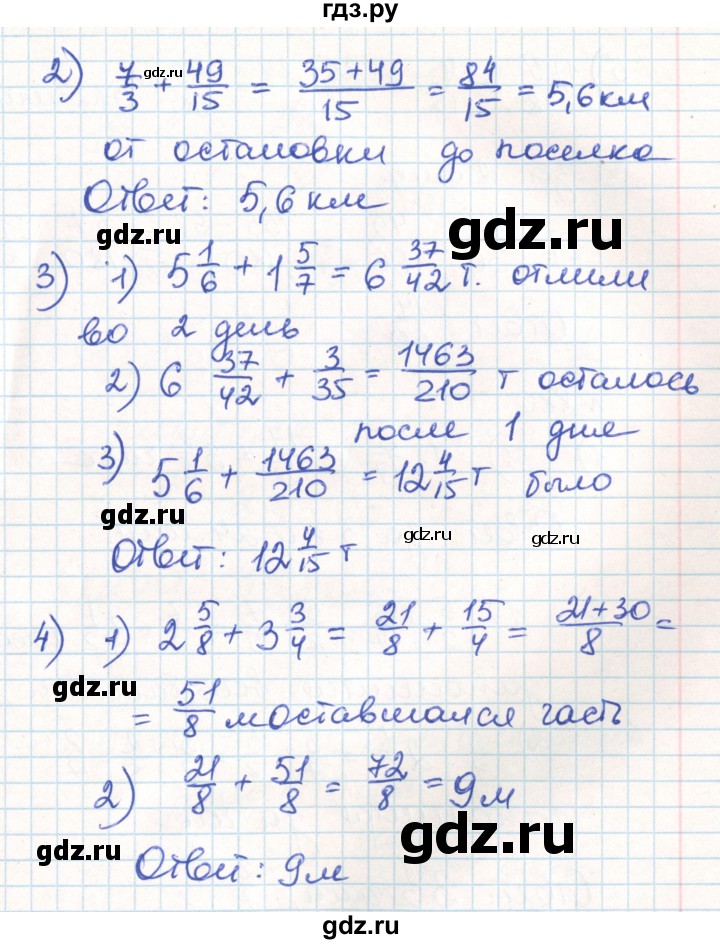 гдз.ру
2) 7/3 + 49/15 = (35+49)/15 = 84/15 = 5,6 км
gdz.ru
от остановки до поселка
Ответ: 5,6 км
gdz.ru
3) 1) 5 1/6 + 1 5/7 = 6 37/42 т. отлили
во 2 день
gdz.ru
2) 6 37/42 + 3/35 = 1463/210 т осталось
после 1 дня
3) 5 1/6 + 1463/210 = 12 4/15 т было
gdz.ru
gdz.ru
gdz.ru
Ответ: 12 4/15 т
4) 1) 2 5/8 + 3 3/4 = 21/8 + 15/4 = (21+30)/8 =
gdz.ru
= 51/8 м оставшаяся часть
2) 21/8 + 51/8 = 72/8 = 9 м
gdz.ru
gdz.ru
Ответ: 9 м
gdz.ru